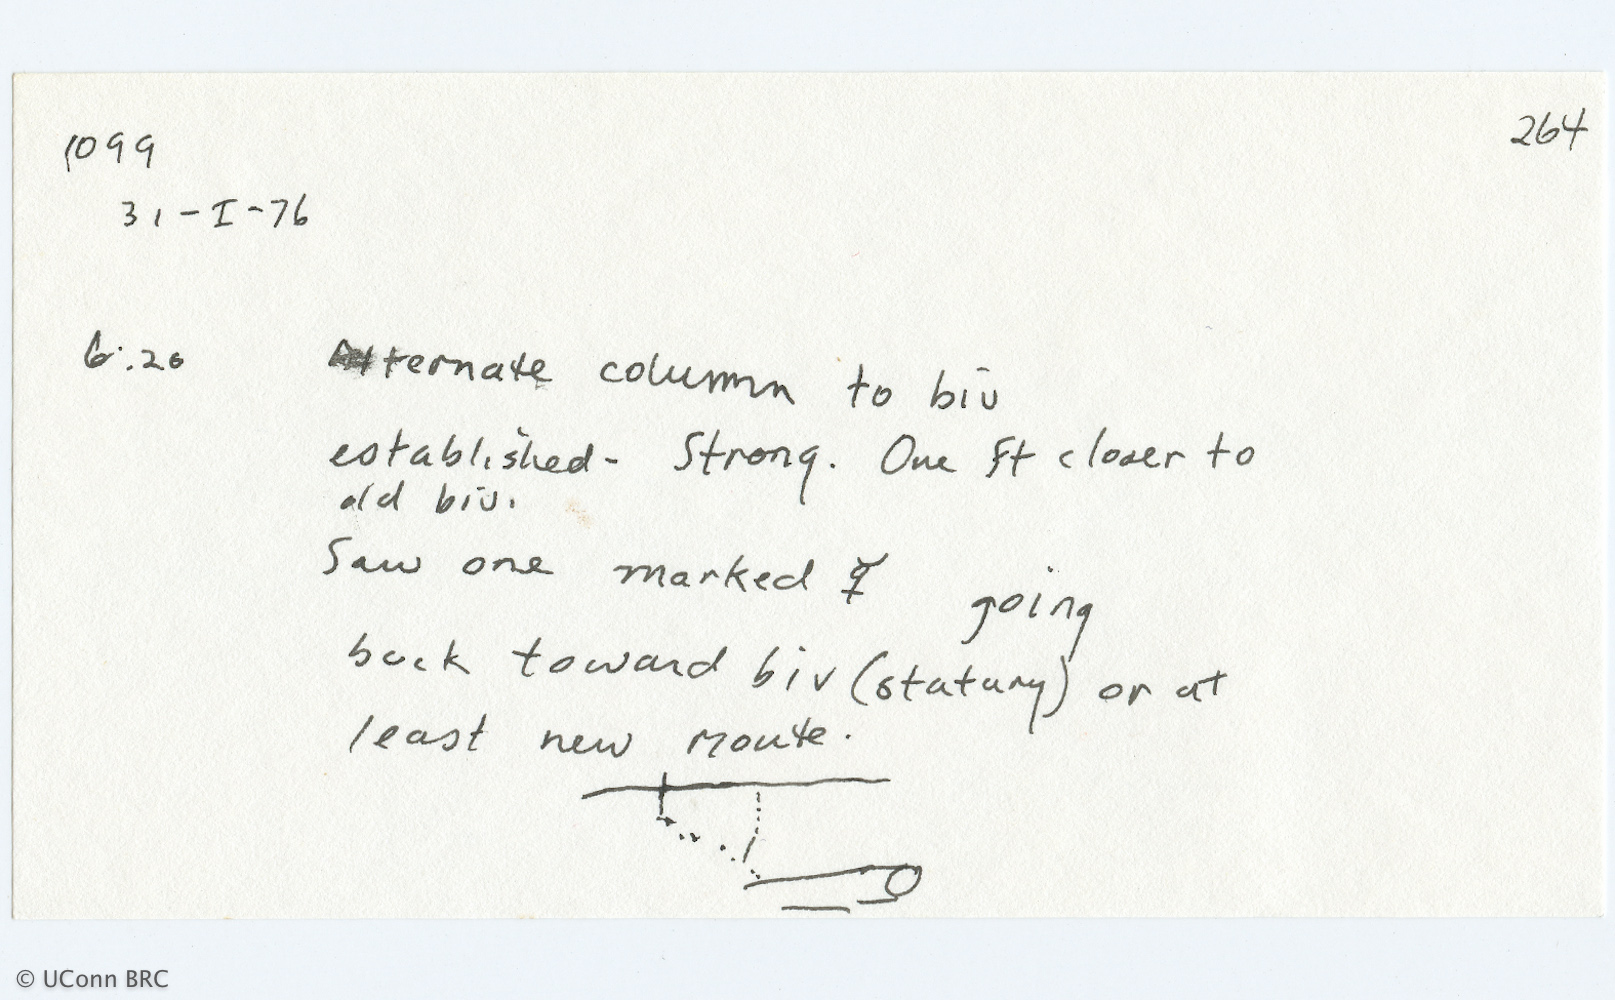 1099
264
31-I-76
6:20 Alternate column to biv
established - Strong. One ft closer to
old biv.
Saw one marked ☿ going
back toward biv (statary) or at
least new route.
© UConn BRC